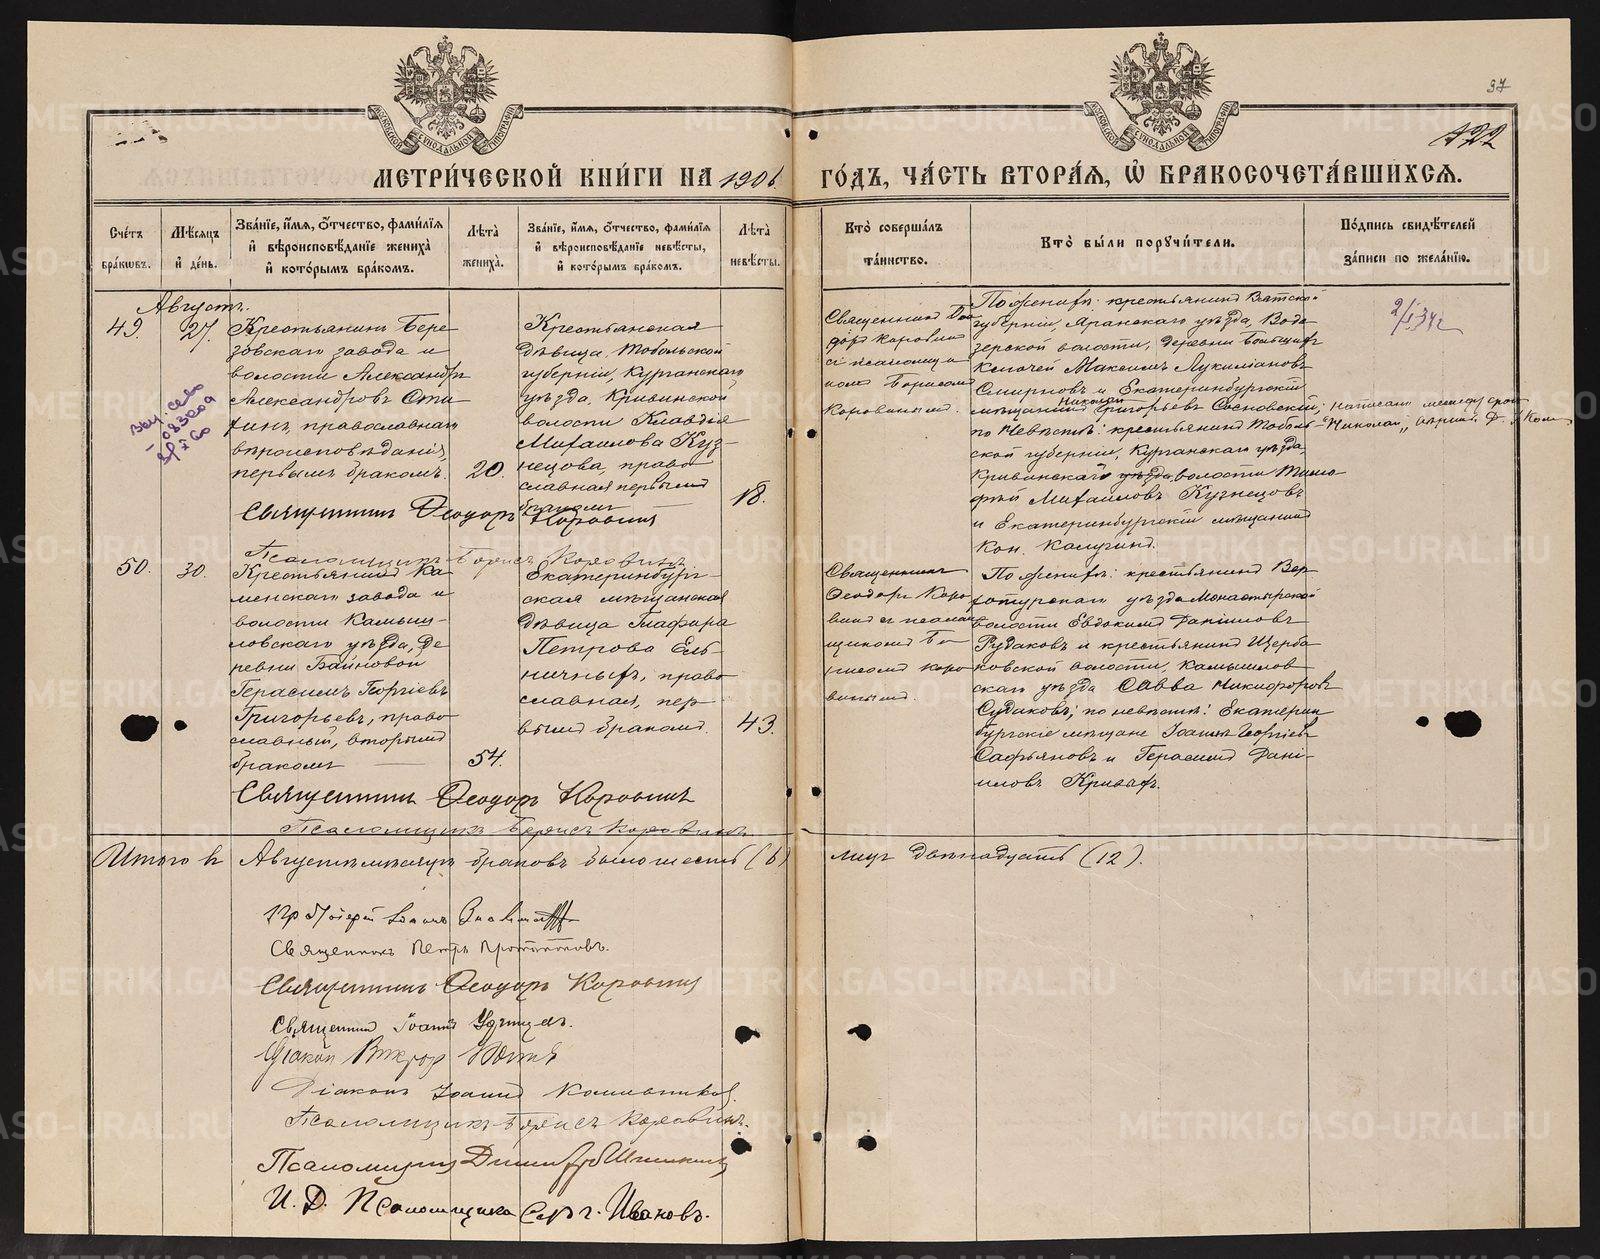 37
122
МЕТРИ́ЧЕСКОЙ КНИ́ГИ НА 1906 ГО́ДЪ, ЧА́СТЬ ВТОРА́Я, Ѡ БРАКОСОЧЕТА́ВШИХСЯ.
Сче́тъ бра́кѡвъ.
Мѣ́сяцъ и҆ де́нь.
Зва́нїе, и҆́мя, ѻ҆́тчество, фами́лїя и҆ вѣроисповѣ́данїе жениха̀ и҆ кото́рымъ бра́комъ.
Лѣ́та жениха̀.
Зва́нїе, и҆́мя, ѻ҆́тчество, фами́лїя и҆ вѣроисповѣ́данїе невѣ́сты, и҆ кото́рымъ бра́комъ.
Лѣ́та невѣ́сты.
Кто̀ соверша́лъ та́инство.
Кто̀ бы́ли порꙋчи́тели.
По́дпись свидѣ́телей за́писи по жела́нїю.
Августъ.
49.
27.
Крестьянинъ Бере
зовскаго завода и
волости Александръ
Александровъ Сти
финъ, православнаго
вѣроисповѣданія,
первымъ бракомъ.
20.
Крестьянская
дѣвица, Тобольской
губерніи, Курганскаго
уѣзда, Кривинской
волости Клавдія
Михаилова Куз-
нецова, право
славная первымъ
бракомъ
18.
Священникъ Ѳео
доръ Коровинъ
съ псаломщи
комъ Борисомъ
Коровинымъ.
По женихѣ: крестьянинъ Вятской
губерніи, Яранскаго уѣзда, Водо
зерской волости, деревни Большихъ
Ключей Максимъ Лукиліановъ
Смирновъ и Екатеринбургскій
мѣщанинъ Николай Григорьевъ Сосновскій;
по невѣстѣ: крестьянинъ Тоболь-
ской губерніи, Курганскаго уѣзда,
Кривинской уѣзда, волости Тимо
фей Михаиловъ Кузнецовъ
и Екатеринбургскій мѣщанинъ
Кон. Калугинъ.
написано между строк
"Николай"
Священникъ Ѳеодоръ Коровинъ
Псаломщикъ Борисъ Коровинъ
50.
30.
Крестьянинъ Ка
менскаго завода и
волости Камыш-
ловскаго уѣзда, де
ревни Байновой
Герасимъ Георгіевъ
Григорьевъ, право
славный, вторымъ
бракомъ
54.
Екатеринбург-
ская мѣщанская
дѣвица Глафира
Петрова Ель-
ничныхъ, право
славная, пер-
вымъ бракомъ.
43.
Священникъ
Ѳеодоръ Коро
винъ съ псалом
щикомъ Бо-
рисомъ Коро
винымъ.
По женихѣ: крестьянинъ Вер
хотурскаго уѣзда Монастырской
волости Евдокимъ Даніиловъ
Рудаковъ и крестьянинъ Щерба
ковской волости, Камышлов
скаго уѣзда Савва Никифоровъ
Судаковъ; по невѣстѣ: Екатерин
бургскіе мѣщане Іоаннъ Георгіевъ
Сафьяновъ и Герасимъ Дані-
иловъ Кривыхъ.
Священникъ Ѳеодоръ Коровинъ
Псаломщикъ Борисъ Коровинъ
Итого въ Августѣ мѣсяцѣ браковъ было шесть (6) лицъ двѣнадцать (12).
Священникъ Петръ
Священникъ Ѳеодоръ Коровинъ
Священникъ Іоаннъ
Діаконъ Викторъ
Діаконъ Іоаннъ
Псаломщикъ Борисъ Коровинъ.
Псаломщикъ Димитрій Шишкинъ
И. Д. Псаломщика Серг. Ивановъ.
METRIKI.GASO-URAL.RU